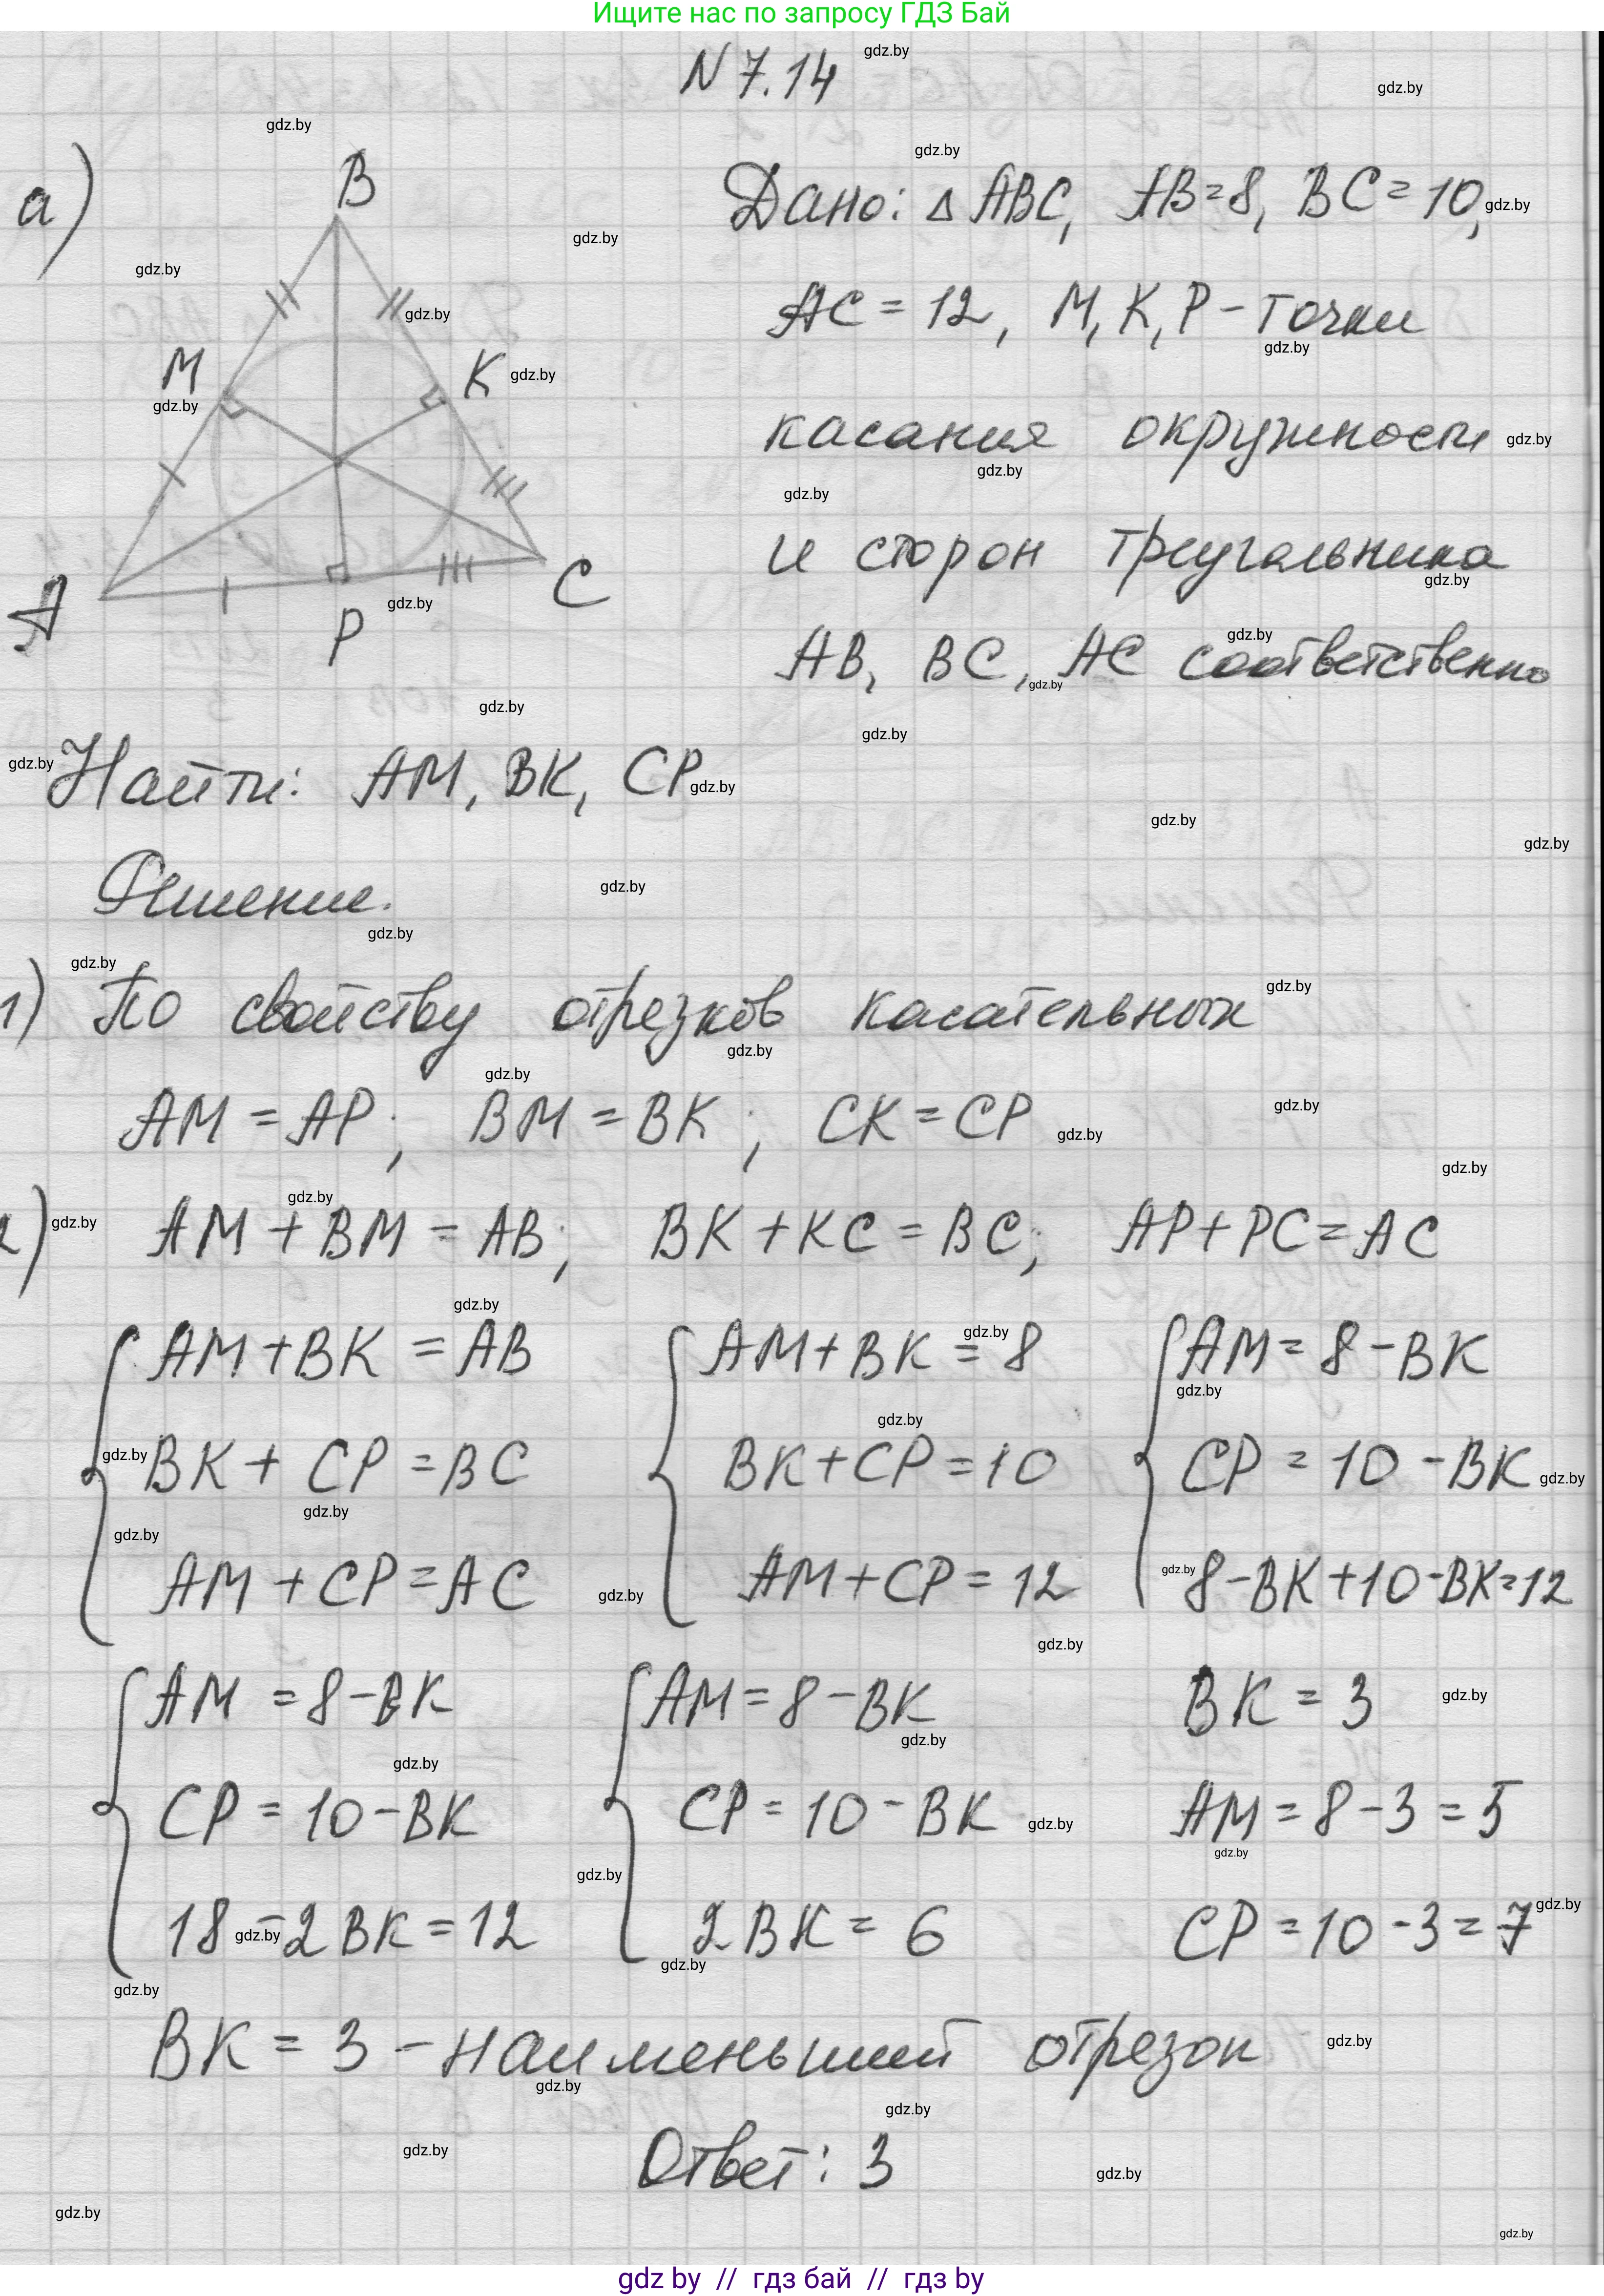 Ищите нас по запросу ГДЗ Бай
N 7.14
а)
B
M
K
A
P
C
Дано: △ ABC, AB=8, BC=10,
AC = 12, M, K, P - точки
касания окружности
и сторон треугольника
AB, BC, AC соответственно
Найти: AM, BK, CP
Решение.
1) По свойству отрезков касательных
AM = AP; BM = BK; CK = CP
2) AM + BM = AB; BK + KC = BC; AP + PC = AC
AM + BK = AB AM + BK = 8 AM = 8 - BK
BK + CP = BC BK + CP = 10 CP = 10 - BK
AM + CP = AC AM + CP = 12 8 - BK + 10 - BK = 12
AM = 8 - BK AM = 8 - BK BK = 3
CP = 10 - BK CP = 10 - BK AM = 8 - 3 = 5
18 - 2 BK = 12 2 BK = 6 CP = 10 - 3 = 7
BK = 3 - наименьший отрезок
Ответ: 3
gdz by // гдз бай // гдз by